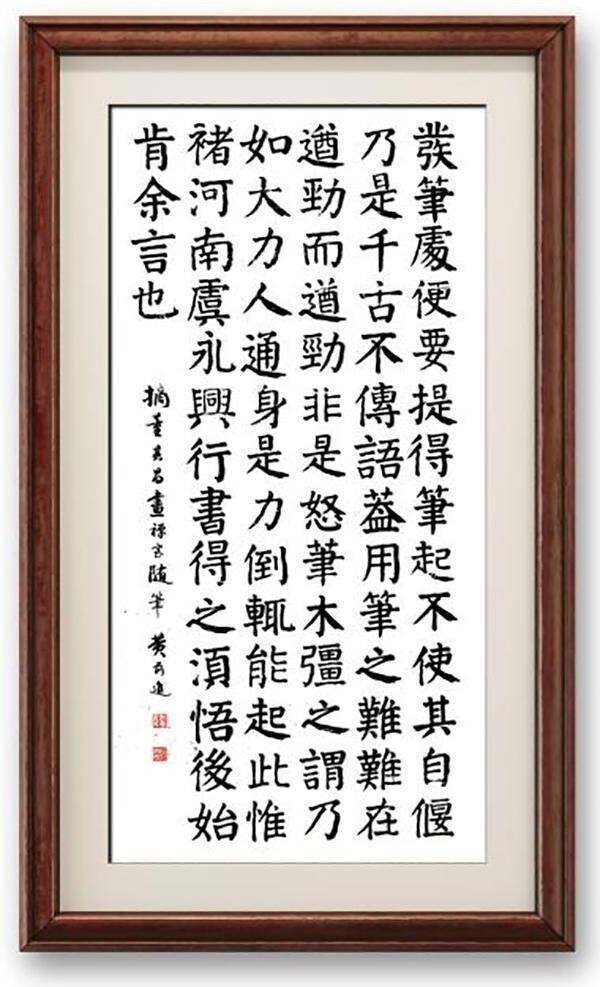 發筆處便要提得筆起不使其自偃
乃是千古不傳語葢用筆之難難在
遒勁而遒勁非是怒筆木彊之謂乃
如大力人通身是力倒輒能起此惟
褚河南虞永興行書得之須悟後始
肯余言也
摘董其昌畫禪室隨筆 黄